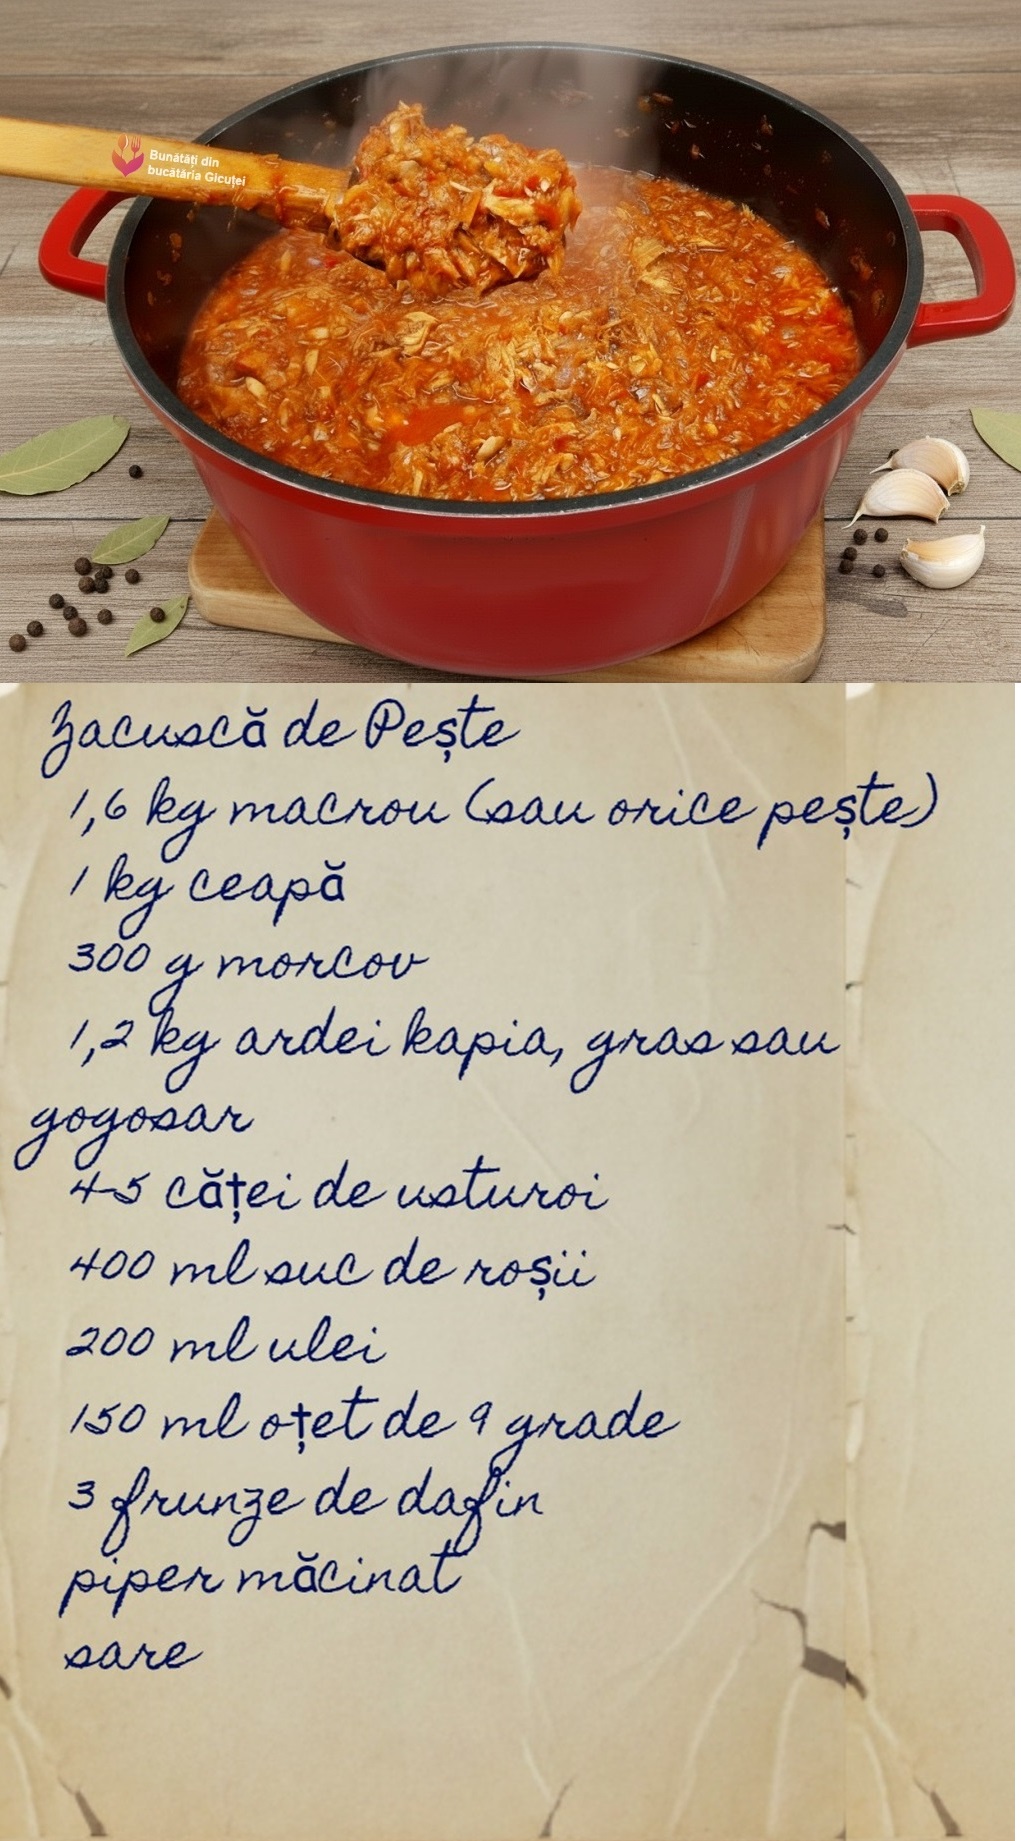 Bunătăți din
bucătăria Gicuței
Zacuscă de Pește
1,6 kg macrou (sau orice pește)
1 kg ceapă
300 g morcov
1,2 kg ardei kapia, gras sau
gogosar
4-5 căței de usturoi
400 ml suc de roșii
200 ml ulei
150 ml oțet de 9 grade
3 frunze de dafin
piper măcinat
sare